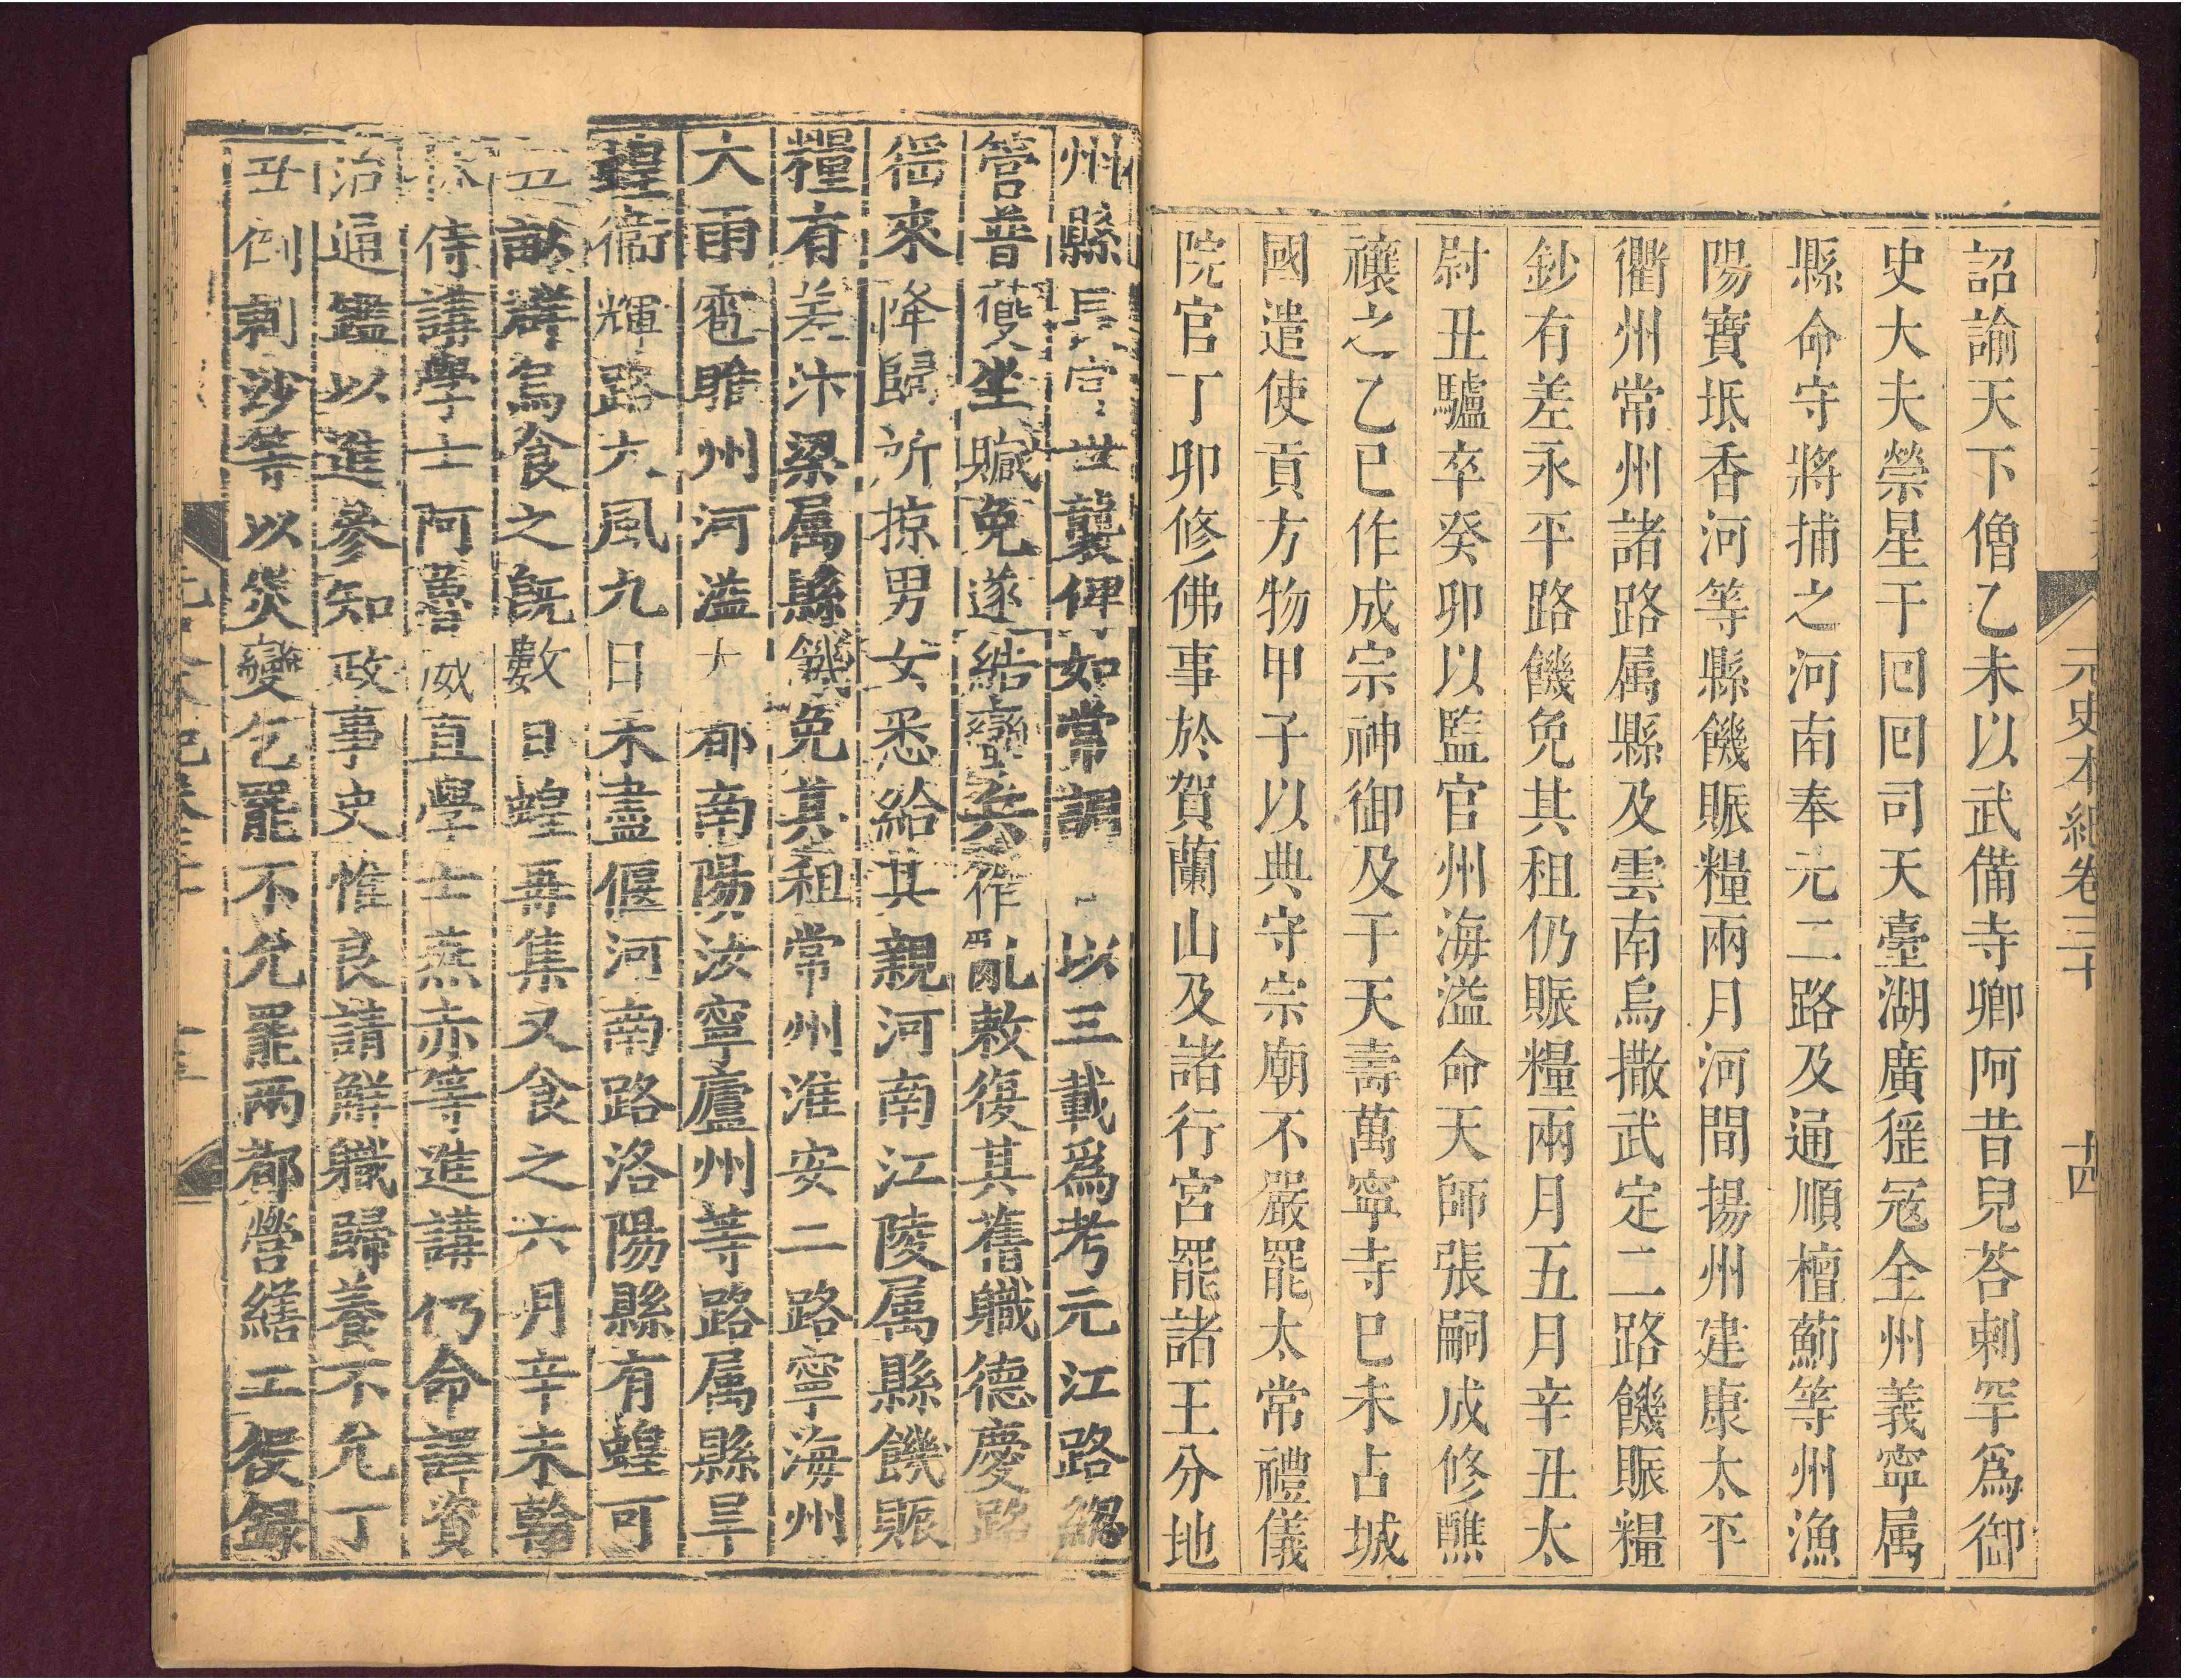 元史本紀卷三十 十四
詔諭天下僧乙未以武備寺卿阿昔兒荅剌罕爲御
史大夫熒星于回回司天臺湖廣猺冦全州義寧属
縣命守將捕之河南奉元二路及通順檀薊等州漁
陽寶坻香河等縣饑賑糧兩月河間揚州建康太平
衢州常州諸路属縣及雲南烏撒武定二路饑賑糧
鈔有差永平路饑免其租仍賑糧兩月五月辛丑太
尉丑驢卒癸卯以監官州海溢命天師張嗣成修醮
禳之乙巳作成宗神御及于天壽萬寧寺巳未占城
國遣使貢方物甲子以典守宗廟不嚴罷太常禮儀
院官丁卯修佛事於賀蘭山及諸行宮罷諸王分地
州縣長官世襲俾如常調 以三載爲考元江路總
管普雙坐贓免遂結蠻兵作亂敕復其舊職德慶路
徭來降歸所掠男女悉給其親河南江陵属縣饑賑
糧有差汴梁属縣饑免其租常州淮安二路寧海州
大雨雹睢州河溢大都南陽汝寧廬州等路属縣旱
蝗衞輝路大風九日禾盡偃河南路洛陽縣有蝗可
五畝羣烏食之旣數日蝗再集又食之六月辛未翰
林侍講學士阿魯威直學士燕赤等進講仍命譯資
治通鑑以進參知政事史惟良請解職歸養不允丁
丑倒剌沙等以災變乞罷不允罷兩都營繕工役録